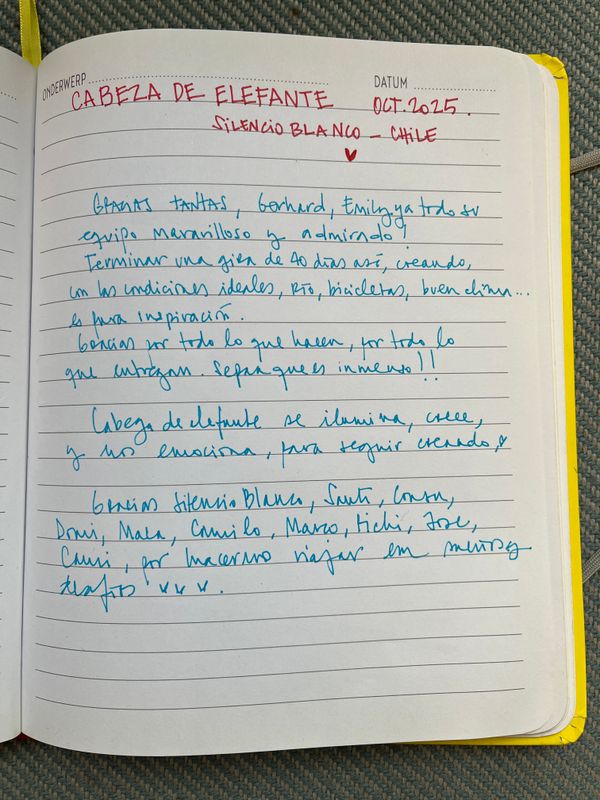 ONDERWERP DATUM
CABEZA DE ELEFANTE OCT. 2025.
SILENCIO BLANCO – CHILE
GRACIAS TANTAS, Gerhard, Emily, y a todo su
equipo maravilloso y admirado!
Terminar una gira de 40 días así, creando,
con las condiciones ideales, RÍO, bicicletas, buen clima...
es pura inspiración.
Gracias por todo lo que hacen, por todo lo
que entregan. Sepan que es inmenso!!
Cabeza de elefante se ilumina, crece,
y nos emociona, para seguir creando,
Gracias Silencio Blanco, Santi, Consu,
Domi, Maca, Camilo, Marco, Michi, José,
Cami, por hacernos viajar en sueños y
desafíos